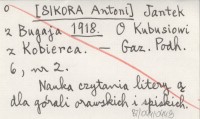 o [SIKORA Antoni] Jantek
z Bugaja 1918. O Kubusiowi
z Kobierca. — Gaz. Podh.
6, nr 2.
Nauka czytania litery ą
dla górali orawskich i spiskich.